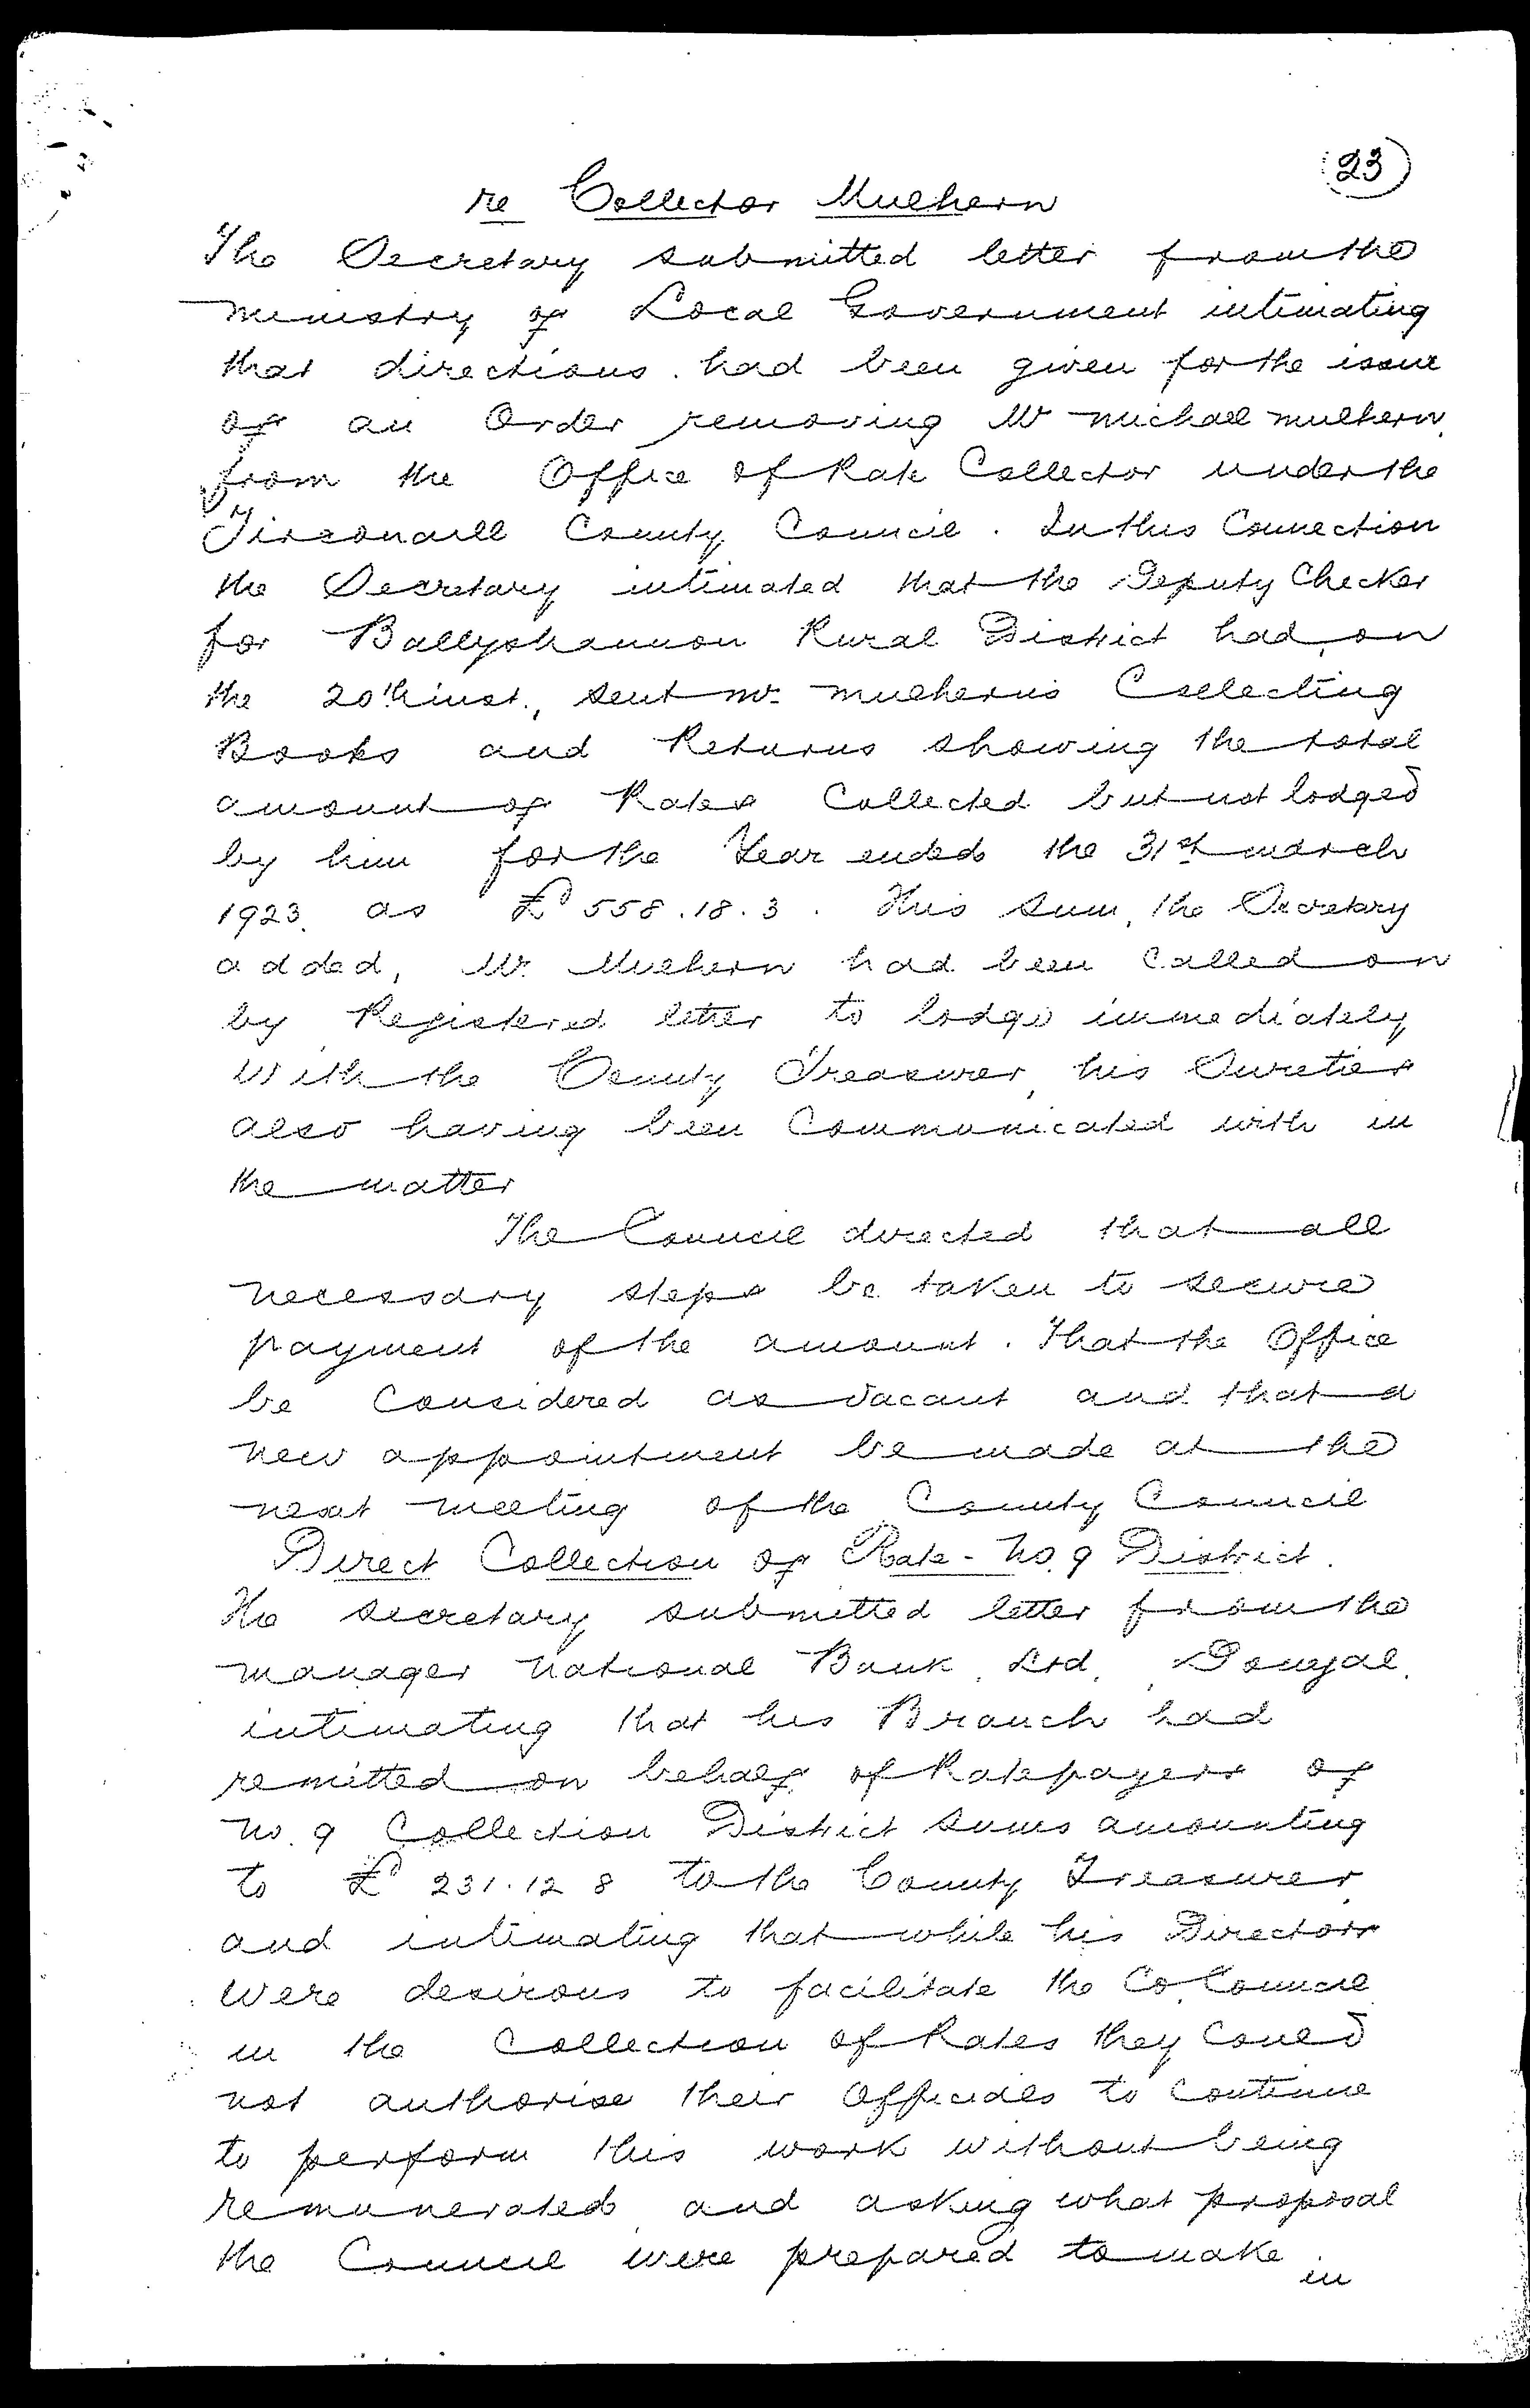 23
re Collector Mulhern
The Secretary submitted letter from the
ministry of Local Government intimating
that directions had been given for the issue
of an Order removing Mr Michael Mulhern
from the Office of Rate Collector under the
Tirconaill County Council. In this Connection
the Secretary intimated that the Deputy Checker
for Ballyshannon Rural District had on
the 20th inst., sent Mr. Mulherns Collecting
Books and Returns showing the total
amount of Rates Collected but not lodged
by him for the Year ended the 31st March
1923. as £558.18.3. This sum, the Secretary
added, Mr. Mulhern had been Called on
by Registered letter to lodge immediately
With the County Treasurer, his Sureties
also having been Communicated with in
the matter
The Council directed that all
necessary steps be taken to secure
payment of the amount. That the Office
be Considered as vacant and that a
new appointment be made at the
next meeting of the County Council
Direct Collection of Rate - No. 9 District.
The secretary submitted letter from the
manager National Bank Ltd, Donegal,
intimating that his Branch had
remitted on behalf of Ratepayers of
No. 9 Collection District sums amounting
to £231.12 8 to the County Treasurer
and intimating that while his Directors
were desirous to facilitate the Co. Council
in the Collection of Rates they Could
not authorise their Officials to Continue
to perform this work without being
remunerated and asking what proposal
the Council were prepared to make
in